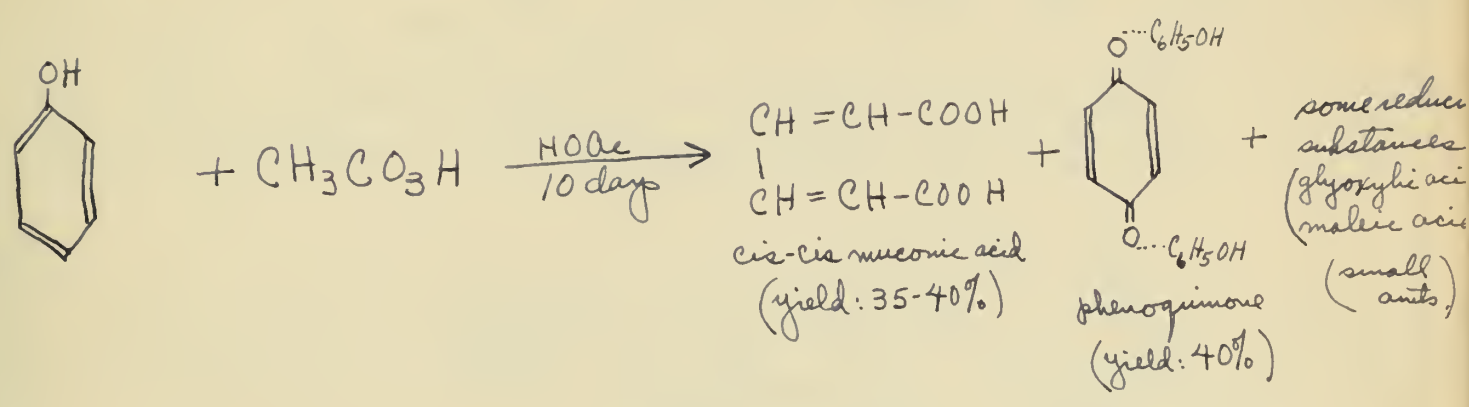 OH
+ CH₃CO₃H
HOAc
10 days
CH=CH-COOH
CH=CH-COOH
cis-cis muconic acid
(yield: 35-40%)
+
O····C₆H₅OH
O····C₆H₅OH
phenoquinone
(yield: 40%)
+
some
substances
(glyoxylic
(maleic
(small
amts.)